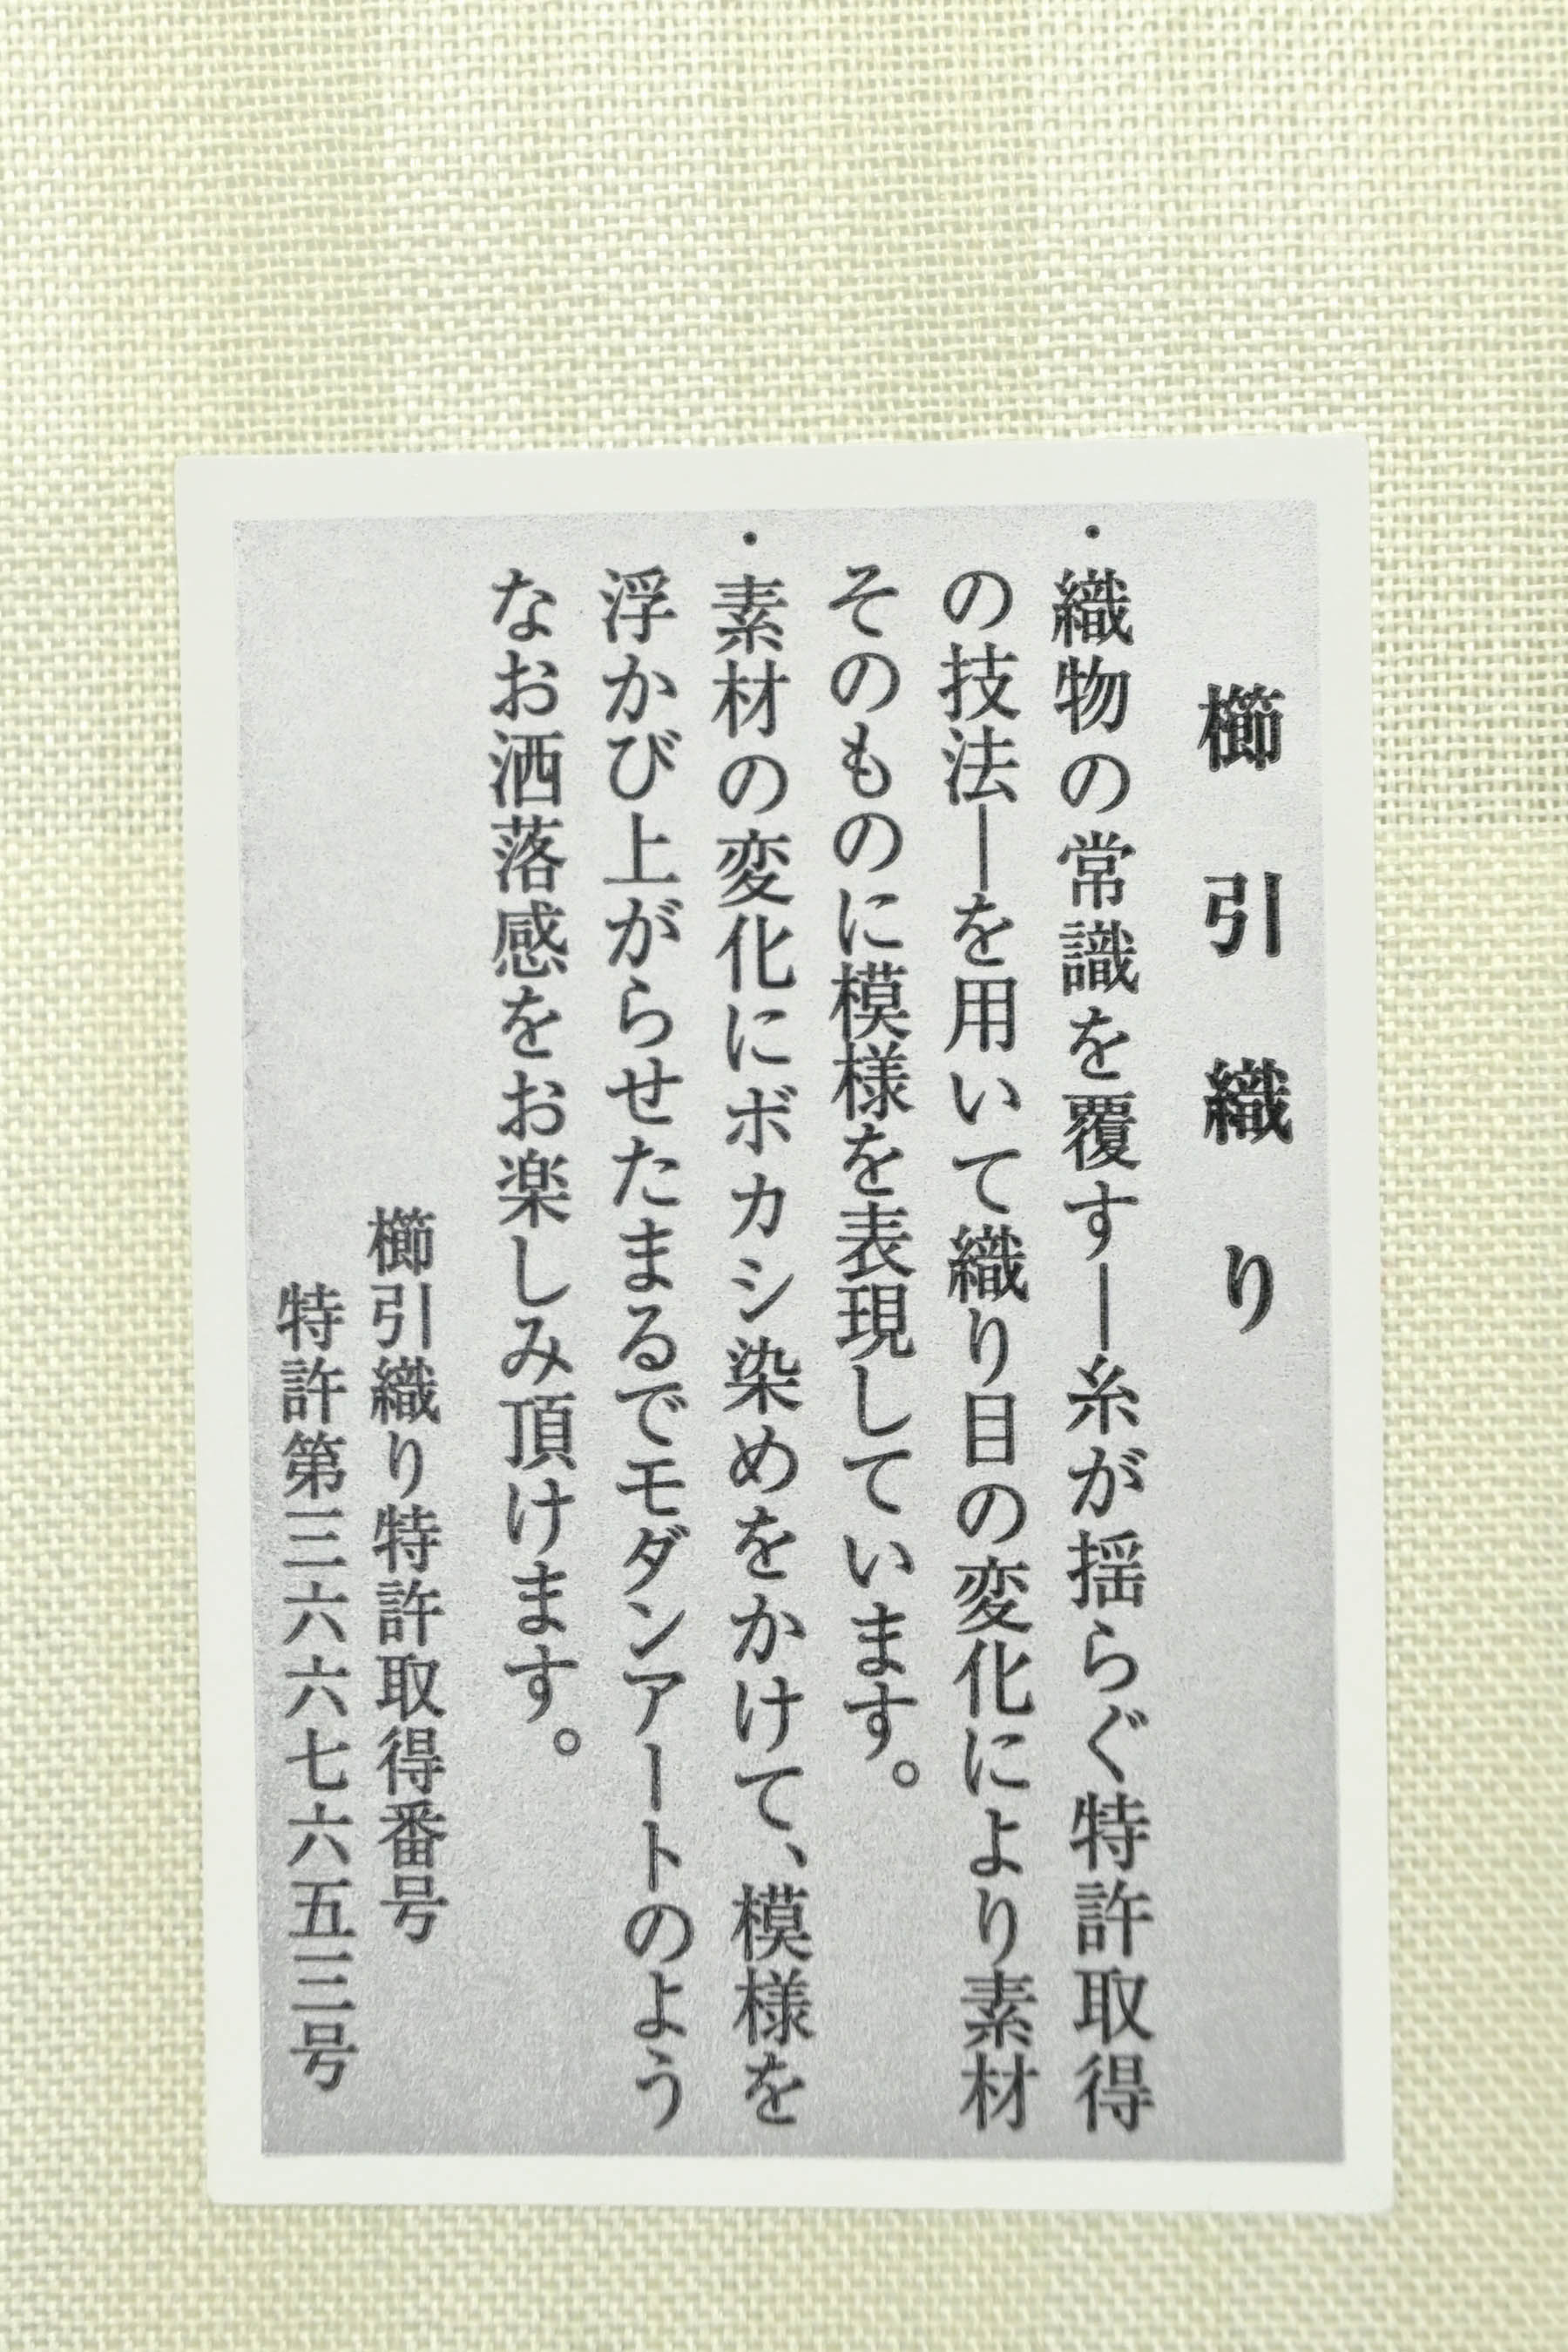 櫛引織り
・織物の常識を覆す―糸が揺らぐ特許取得
の技法―を用いて織り目の変化により素材
そのものに模様を表現しています。
・素材の変化にボカシ染めをかけて、模様を
浮かび上がらせたまるでモダンアートのよう
なお洒落感をお楽しみ頂けます。
櫛引織り特許取得番号
特許第三六六七六五三号